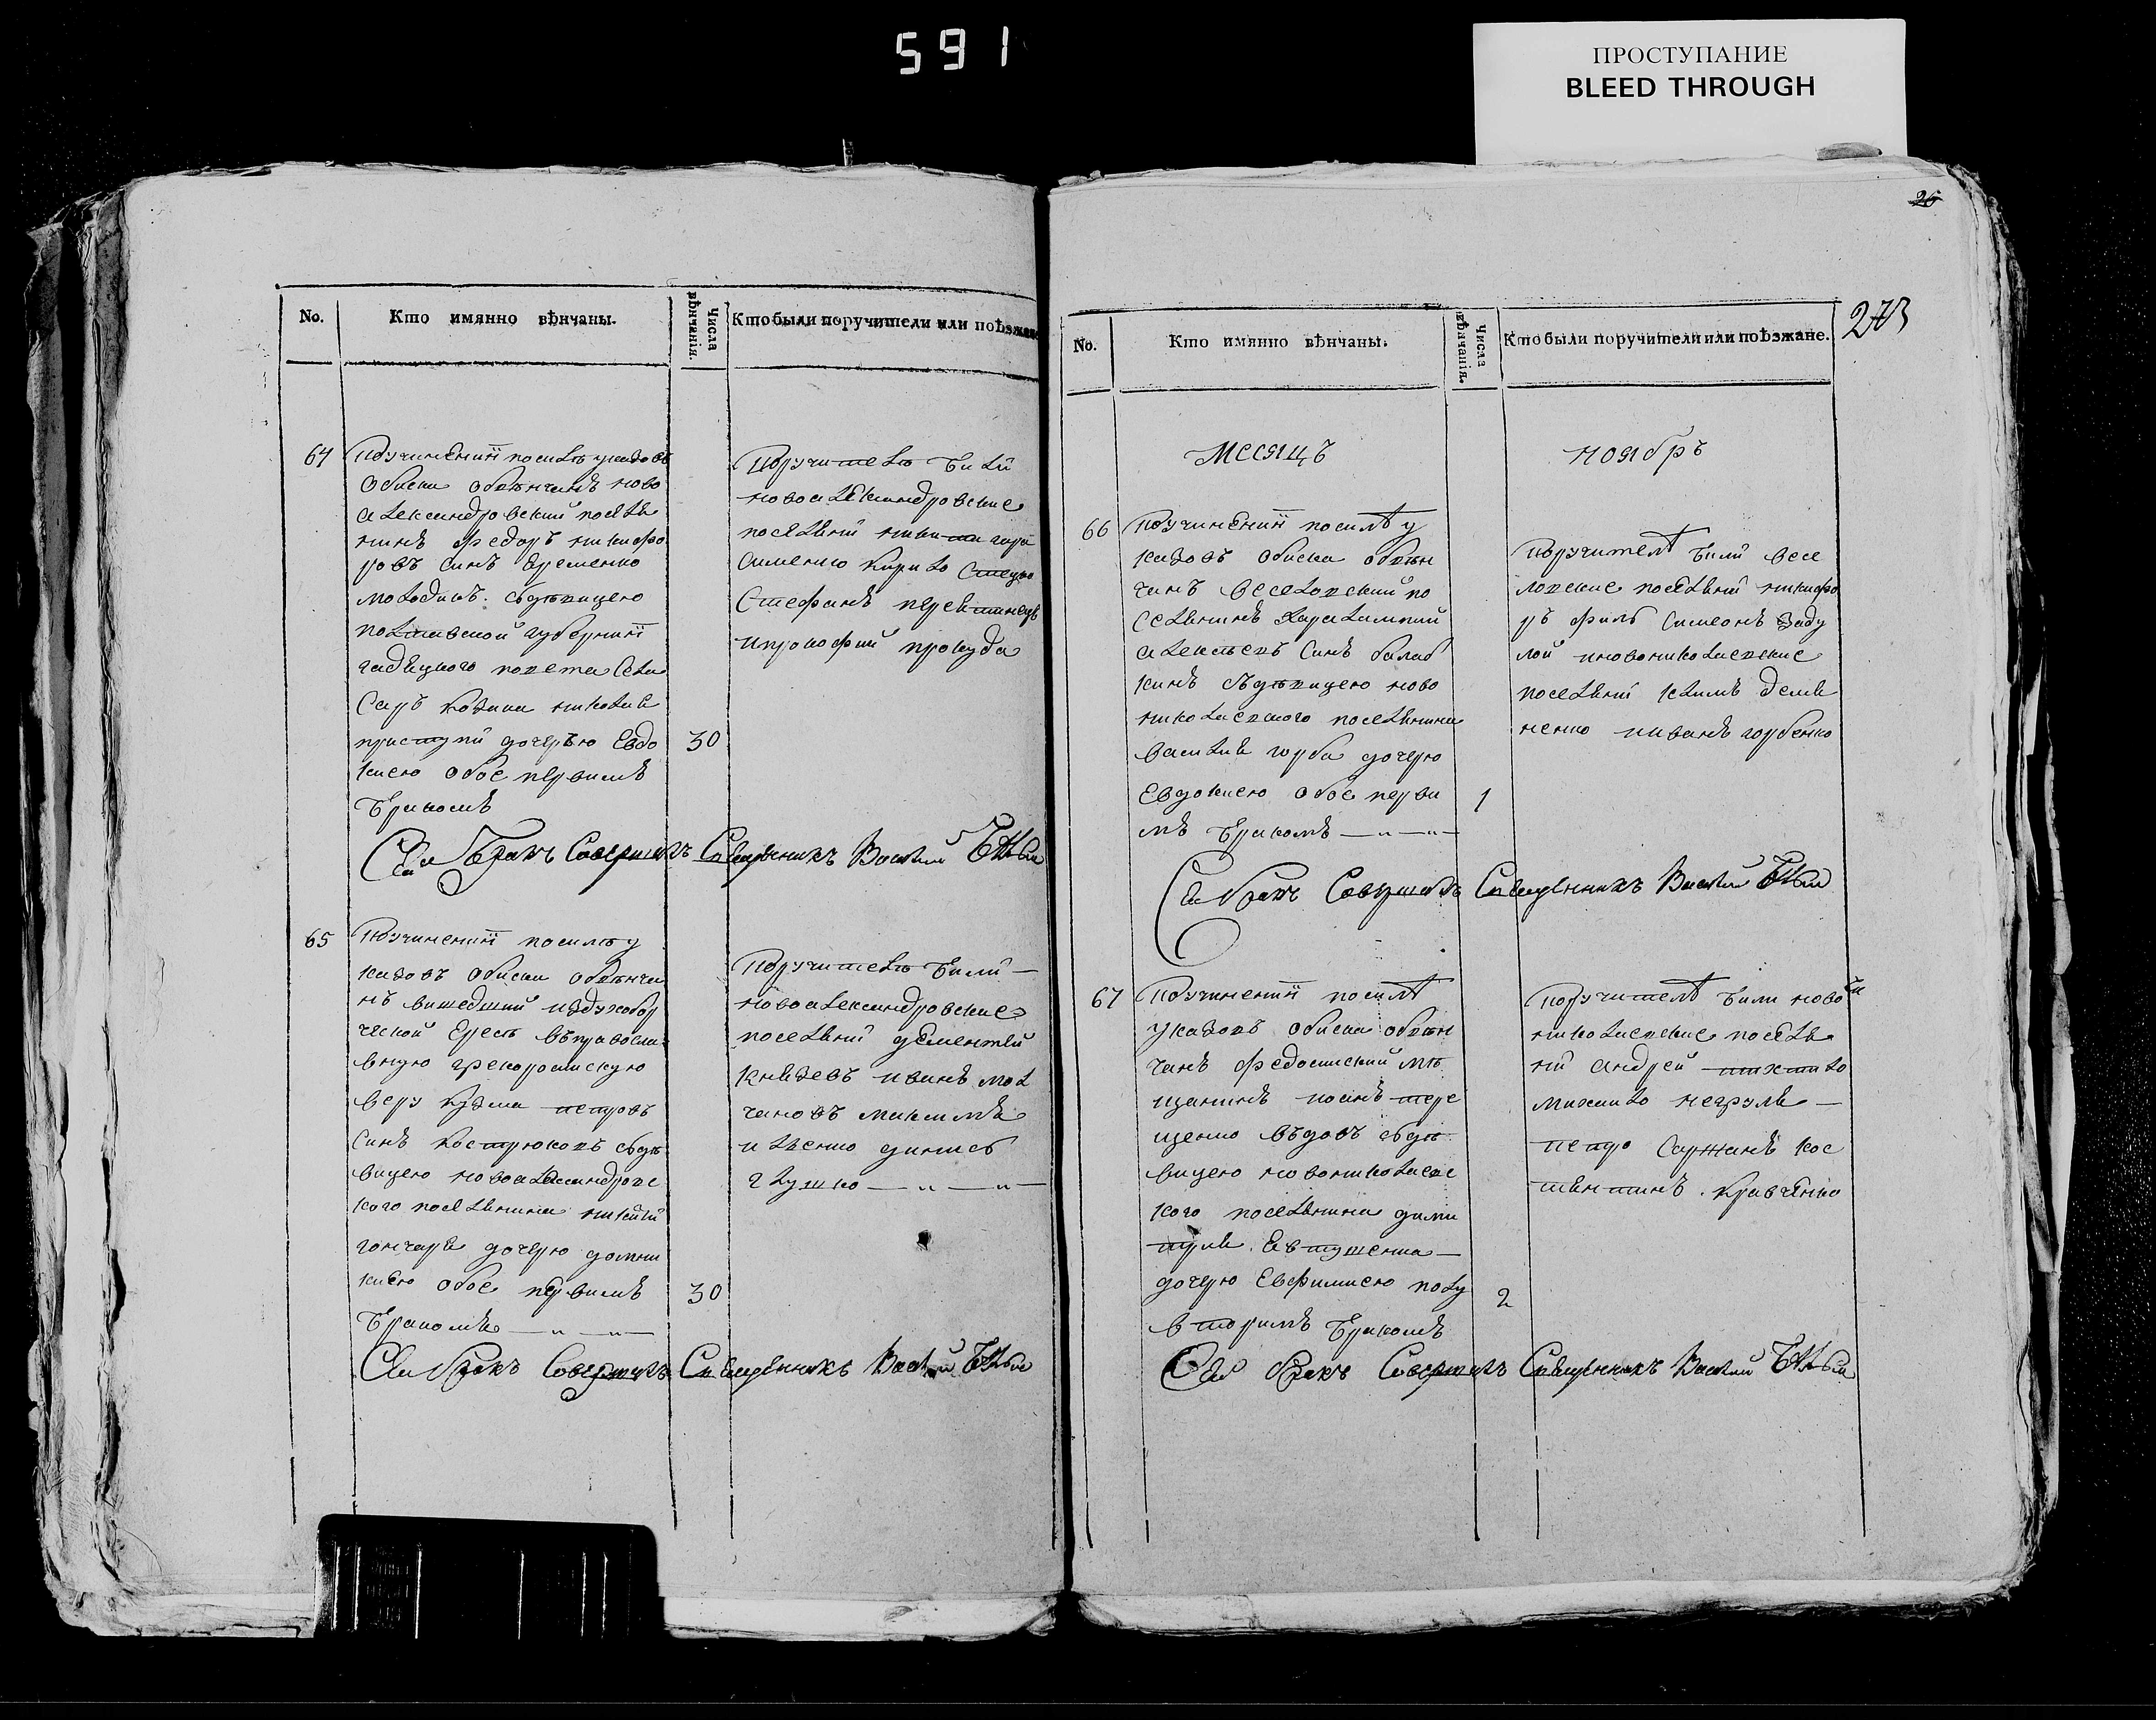 591
ПРОСТУПАНИЕ
BLEED THROUGH
26
273
No.
Кто имянно вѣнчаны.
Числа вѣнчанія.
Кто были поручители или поѣзжане
64
По учинении по силѣ указовъ
обиска обвѣнчанъ ново
александровский поселя
нинъ федоръ никифо
ровъ синъ Еременко
молодикъ. сдѣвицею
полтавской губернии
гадяцкого повета села
Саръ козака николая
приступи дочерью Евдо
киею обое первимъ
бракомъ
30
Поручителѣ били
новоалександровские
поселяни никита гара
сименко Кирило Стецко
Стефанъ перетинецъ
ипрокофий прокуда
Сей Бракъ Совершилъ Священникъ Василий
65
По учинении по силѣ у
казовъ обиска обвѣнча
нъ вишедший издухобор
ческой Ереси въправосла
вную грекороссискую
веру Кузма петровъ
синъ Кострюковъ сдѣ
вицею новоалександровс
кого поселянина никити
гончаря дочерю домни
киею обое первимъ
бракомъ
30
Поручителѣ били
новоалександровские
поселяни дементей
Князевъ иванъ мол
чановъ максимъ
ильенко динисъ
глушко
Сей бракъ Совершилъ Священникъ Василий
No.
Кто имянно вѣнчаны.
Числа вѣнчанія.
Кто были поручители или поѣзжане.
Месяцъ ноябръ
66
По учинении по силѣ у
казовъ обиска обвѣн
чанъ веселовский по
селянинъ Харалампий
алексѣевъ синъ балаб
кинъ сѣдѣвицею ново
николаевского поселянина
василия горба дочерю
Евдокиею обое перви
мъ бракомъ
1
Поручителѣ били весе
ловские поселяни никифо
ръ филь Симеонъ Заду
лой иновониколаевские
поселяни климъ демя
ненко ииванъ горбенко
Сей бракъ Совершилъ Священникъ Василий
67
По учинении по силѣ
указовъ обиска обвѣн
чанъ федосийский мѣ
щанинъ иоанъ тере
щенко въдовъ сдѣ
вицею новониколаевс
кого поселянина дими
трия Евтушенка
дочерю Евфимиею полу
вторимъ бракомъ
2
Поручителѣ били ново
николаевские поселя
ни андрей
михайло негруля
педо Саржанъ кос
тянтинъ кравченко
Сей бракъ Совершилъ Священникъ Василий